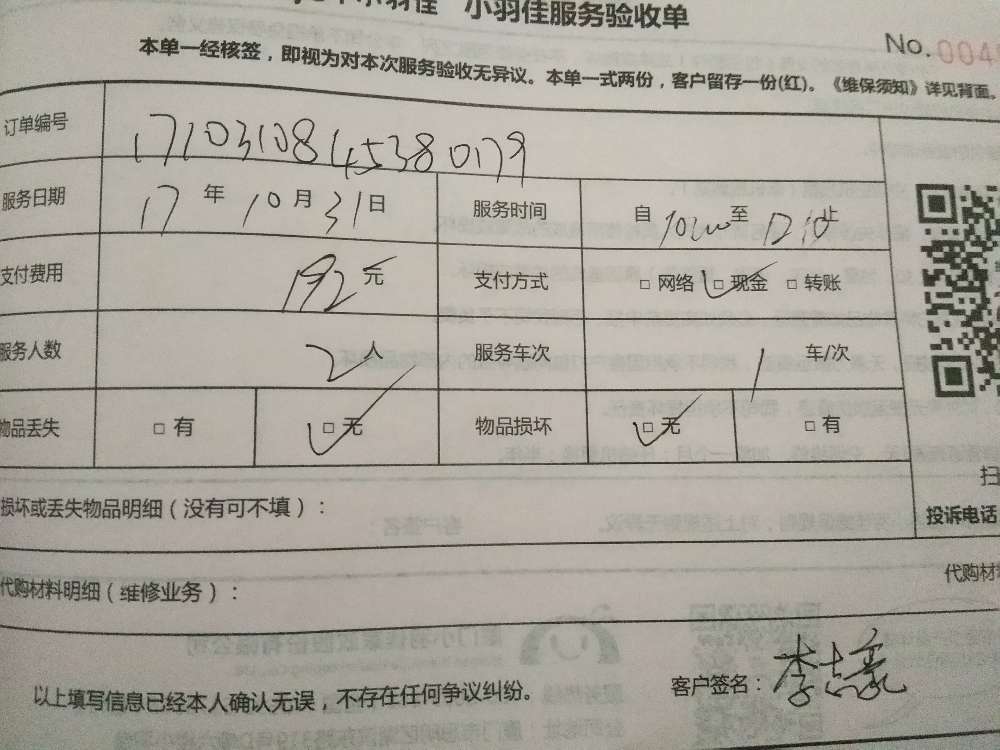 小羽佳服务验收单
No.
本单一经核签，即视为对本次服务验收无异议。本单一式两份，客户留存一份(红)。《维保须知》详见背面。
订单编号 1710310845380179
服务日期 17 年 10 月 31 日 服务时间 自 10:00 至 止
支付费用 192 元 支付方式 □ 网络 □ 现金 □ 转账
服务人数 2 人 服务车次 1 车/次
物品丢失 □ 有 □ 无 物品损坏 □ 无 □ 有
扫
损坏或丢失物品明细（没有可不填）：
投诉电话
代购材料明细（维修业务）：
代购材
以上填写信息已经本人确认无误，不存在任何争议纠纷。
客户签名：李志豪